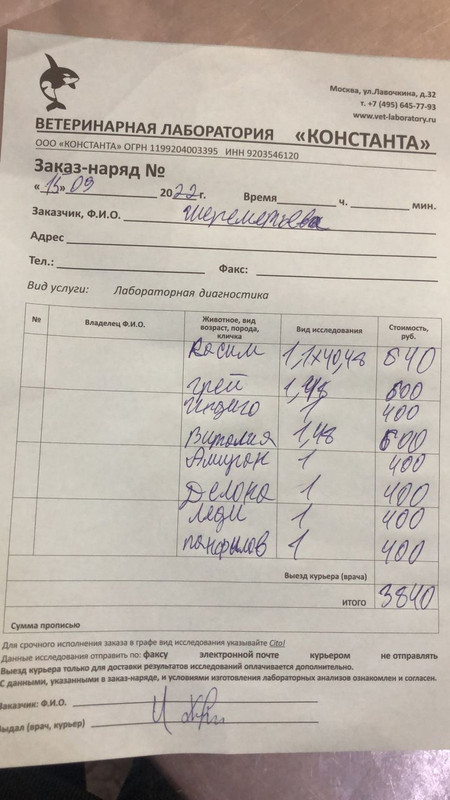 Москва, ул.Лавочкина, д.32
т. +7 (495) 645-77-93
www.vet-laboratory.ru
ВЕТЕРИНАРНАЯ ЛАБОРАТОРИЯ «КОНСТАНТА»
ООО «КОНСТАНТА» ОГРН 1199204003395 ИНН 9203546120
Заказ-наряд №
«13» 09 2022г. Время ч. мин.
Заказчик, Ф.И.О. Шереметьева
Адрес
Тел.: Факс:
Вид услуги: Лабораторная диагностика
№ Владелец Ф.И.О. Животное, вид возраст, порода, кличка Вид исследования Стоимость, руб.
Васим 640
Грей 1,48 600
Индиго 1 400
Виталия 1,48 600
Амиран 1 400
Делона 1 400
Леди 1 400
Панфылов 1 400
Выезд курьера (врача)
ИТОГО 3840
Сумма прописью
Для срочного исполнения заказа в графе вид исследования указывайте Cito!
Данные исследования отправить по: факсу электронной почте курьером не отправлять
Выезд курьера только для доставки результатов исследований оплачивается дополнительно.
С данными, указанными в заказ-наряде, и условиями изготовления лабораторных анализов ознакомлен и согласен.
Заказчик: Ф.И.О.
Выдал (врач, курьер)